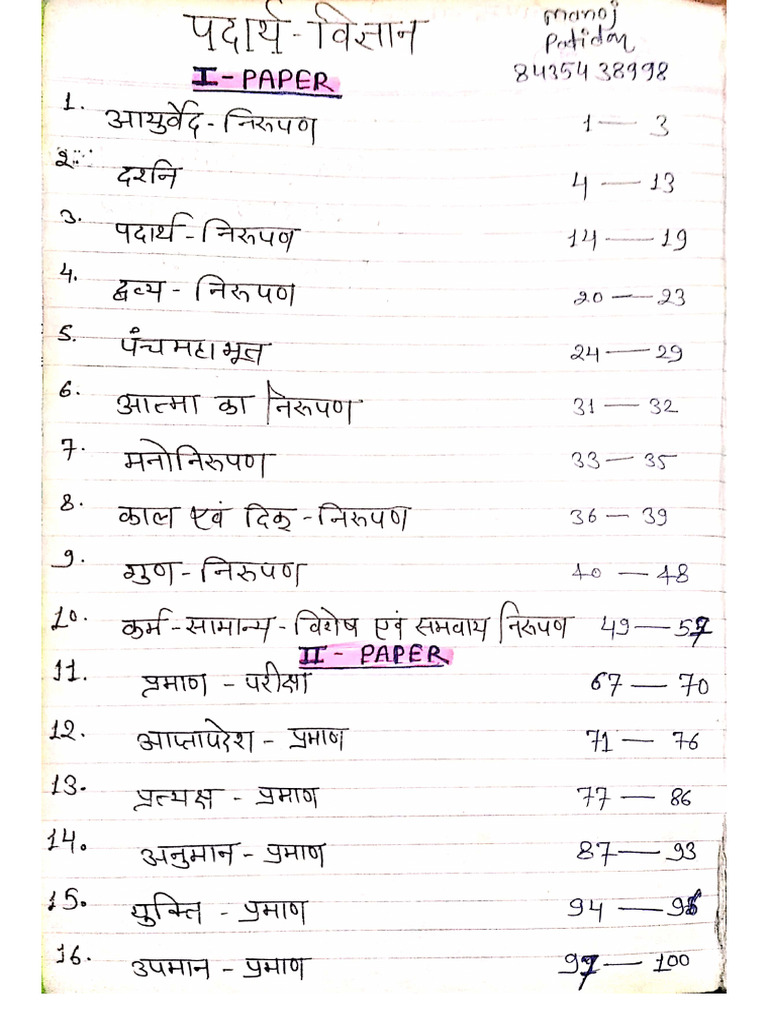 पदार्थ-विज्ञान
manoj
Patidar
84354 38998
I-PAPER
1. आयुर्वेद-निरूपण 1 — 3
2. दर्शन 4 — 13
3. पदार्थ-निरूपण 14 — 19
4. द्रव्य - निरूपण 20 — 23
5. पंचमहाभूत 24 — 29
6. आत्मा का निरूपण 31 — 32
7. मनोनिरूपण 33 — 35
8. काल एवं दिक् - निरूपण 36 — 39
9. गुण - निरूपण 40 — 48
10. कर्म-सामान्य-विशेष एवं समवाय निरूपण 49 — 57
II - PAPER
11. प्रमाण - परीक्षा 67 — 70
12. आप्तोपदेश - प्रमाण 71 — 76
13. प्रत्यक्ष - प्रमाण 77 — 86
14. अनुमान - प्रमाण 87 — 93
15. युक्ति - प्रमाण 94 —
16. उपमान - प्रमाण 97 — 100